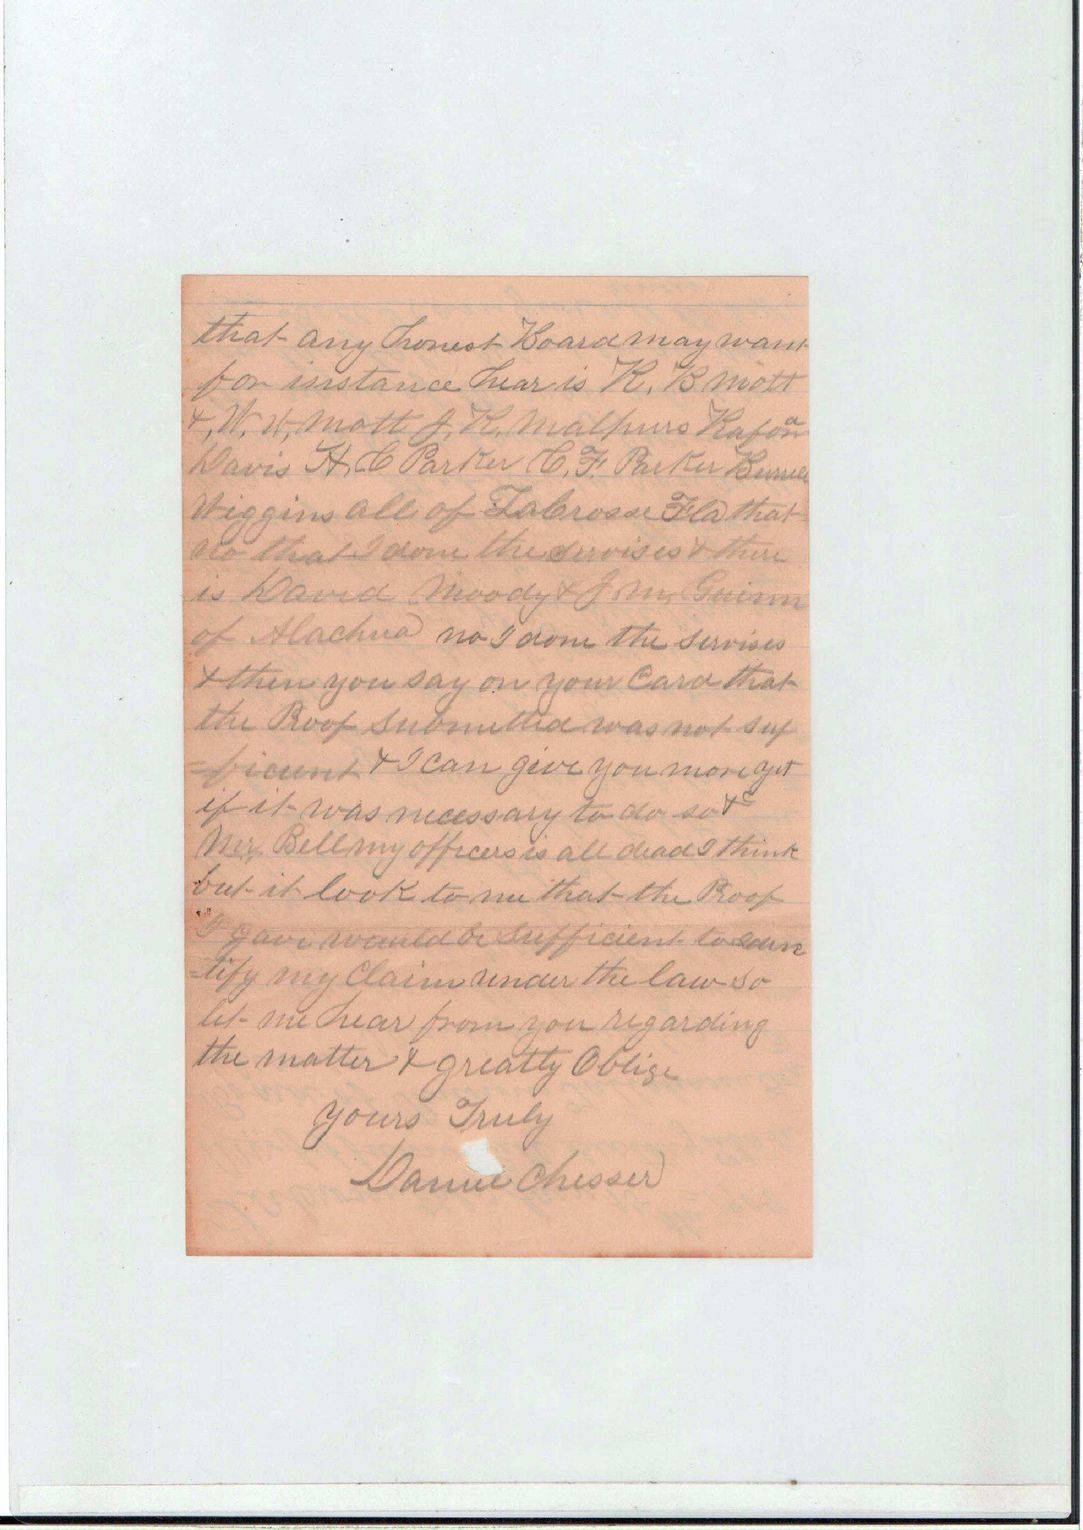 that any honest Board may want
for instance hear is R. B Mott
&, W. H, Mott J. R. Malphurs
Davis H. C Parker C. F. Parker Burrell
Wiggins all of LaCrosse Fla that
no that I done the servises & there
is David Moody & J M, Guinn
of Alachua no I done the servises
& then you say on your Card that
the Proof submitted was not suf
=ficient & I can give you more yet
if it was necessary to do so &c
Mr, Bell my officers is all dead I think
but it look to me that the Proof
I gave would be sufficient to
=tify my Claim under the law so
let me hear from you regarding
the matter & greatly Oblige
yours Truly
Dannie Chesser